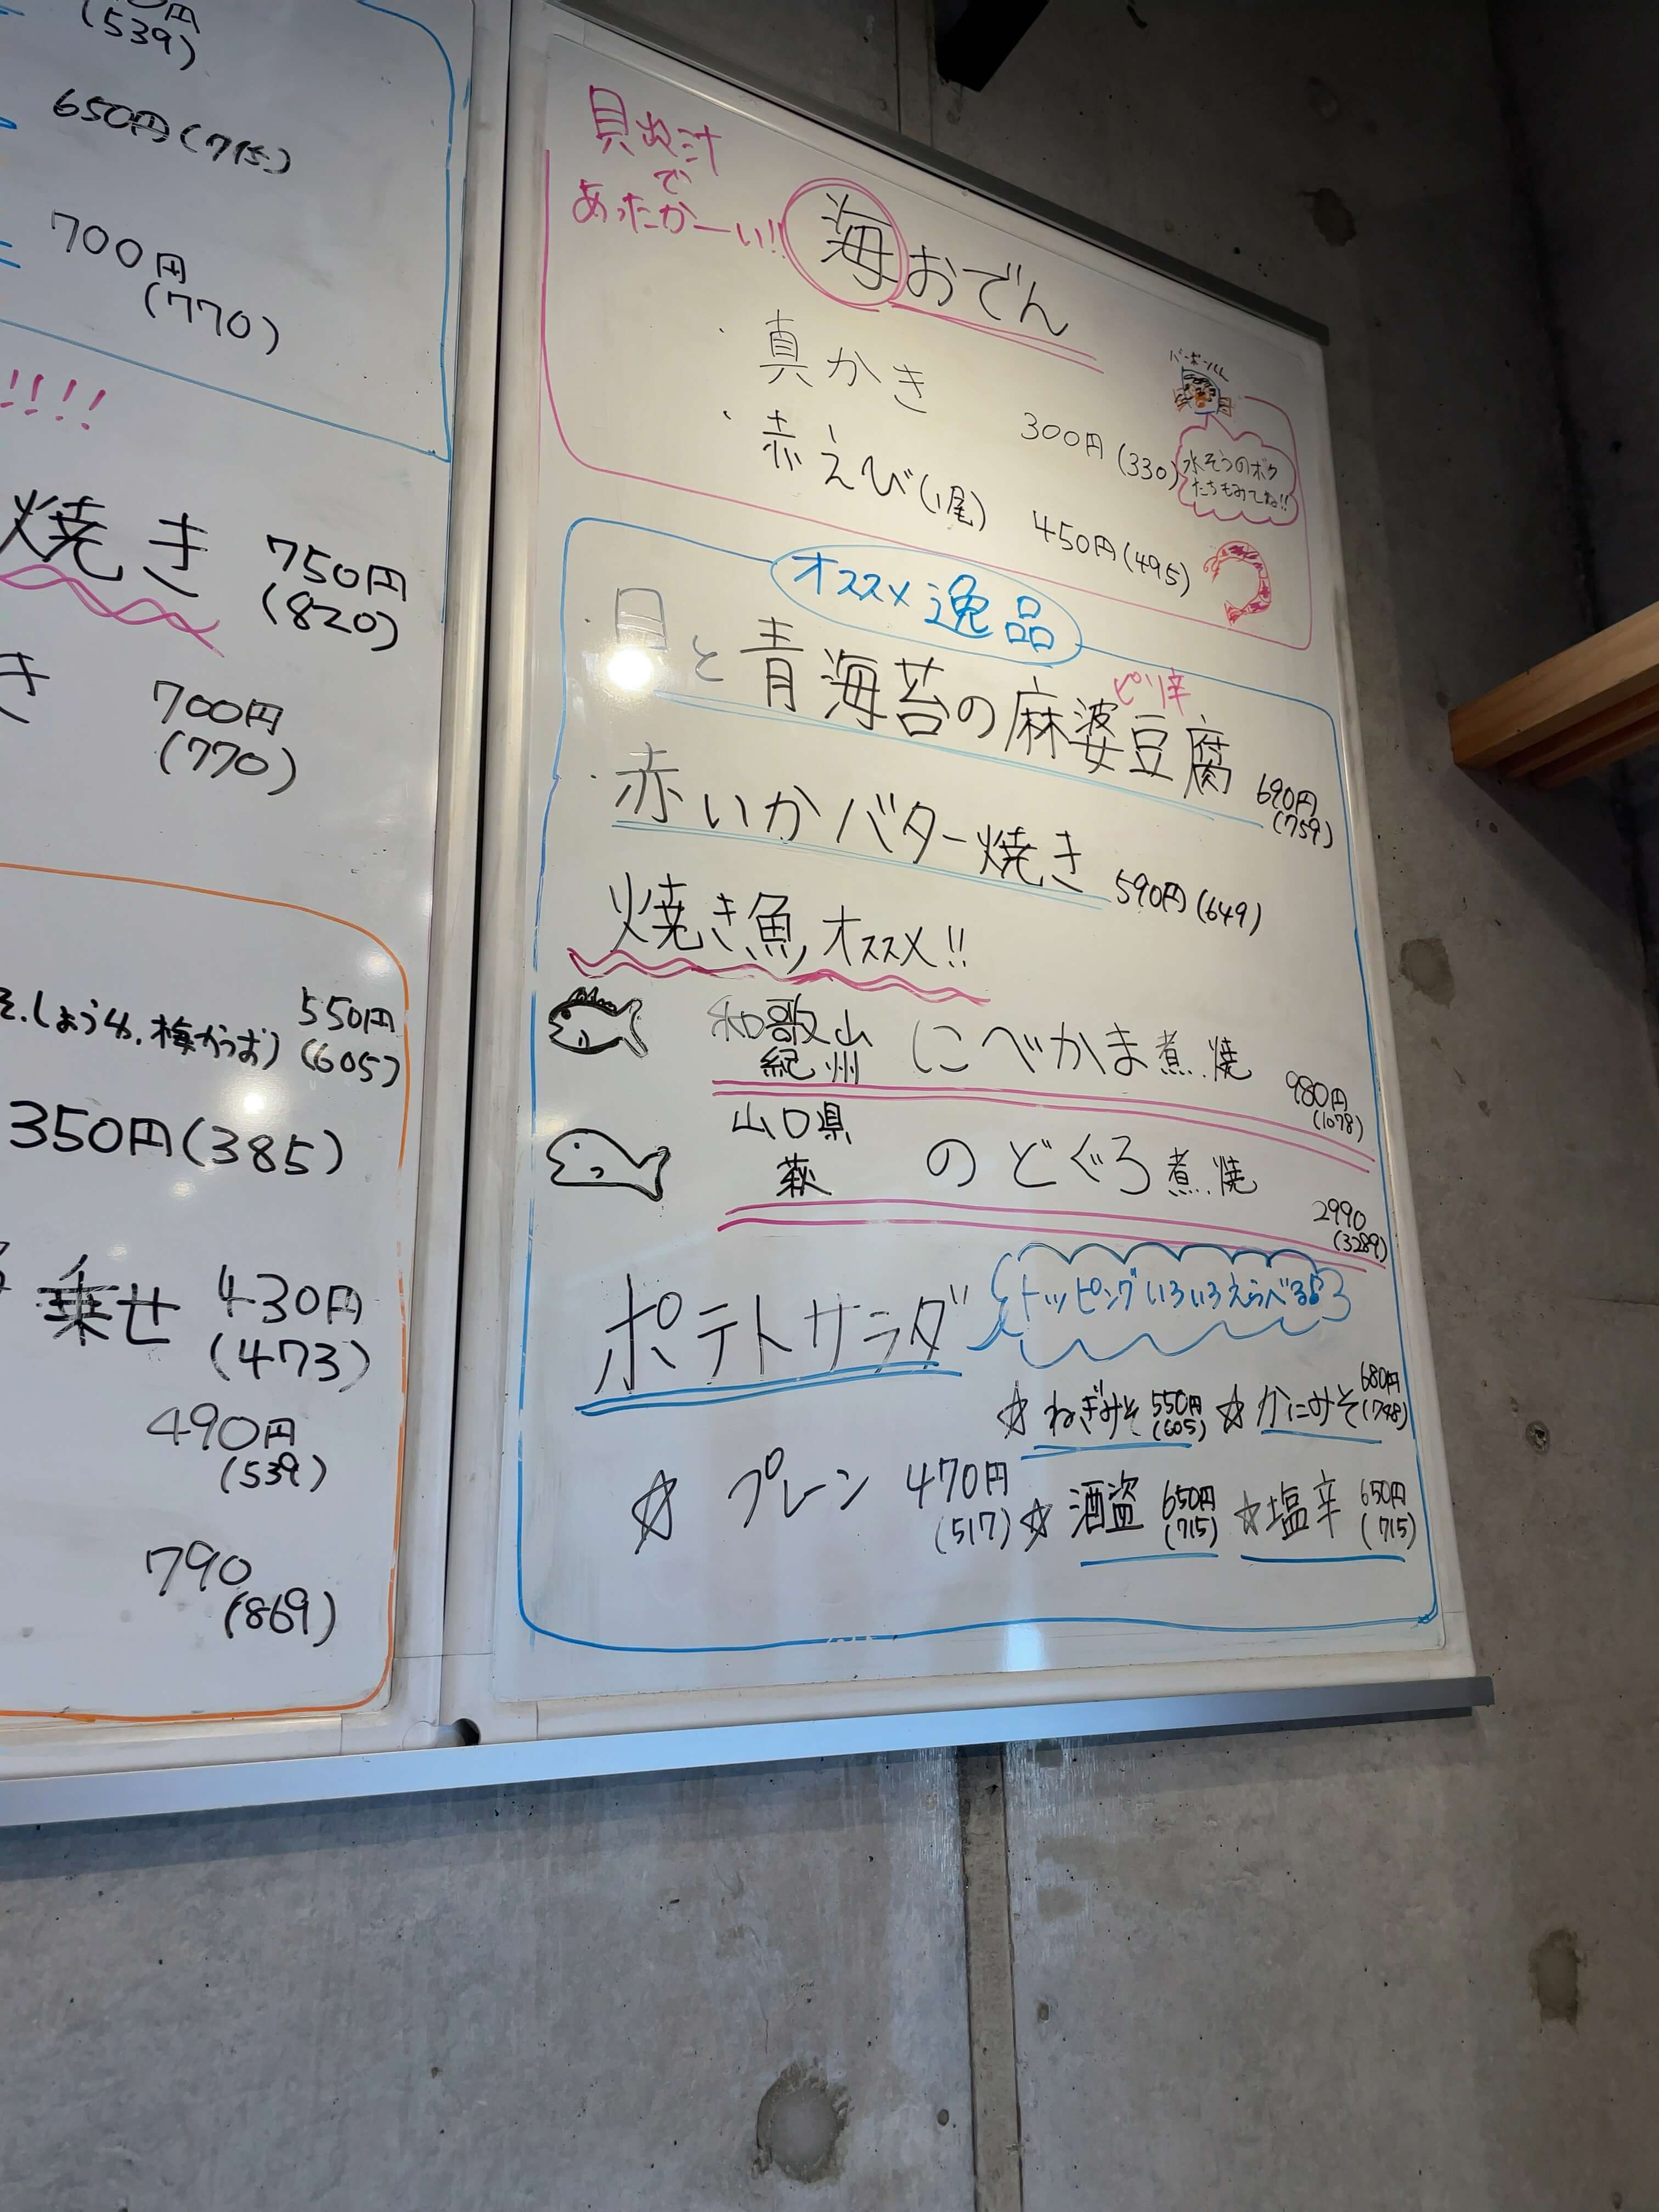 (539)
650円(715)
700円
(770)
!!!!
焼き 750円
(820)
き 700円
(770)
そ、しょうゆ、梅かつお) 550円
(605)
350円(385)
乗せ 430円
(473)
490円
(539)
790
(869)
貝出汁
で
あったかーい!!
海おでん
・真かき 300円(330)
・赤えび(1尾) 450円(495)
水そうのボク
たちもみてね!!
オススメ逸品
ピリ辛
・貝と青海苔の麻婆豆腐 690円
(759)
・赤いかバター焼き 590円(649)
焼き魚オススメ!!
和歌山
紀州 にべかま煮.焼 980円
(1078)
山口県
萩 のどぐろ煮.焼 2990
(3289)
ポテトサラダ
トッピングいろいろえらべる♪
☆ねぎみそ 550円
(605)
☆かにみそ 680円
(748)
☆プレーン 470円
(517)
☆酒盗 650円
(715)
☆塩辛 650円
(715)